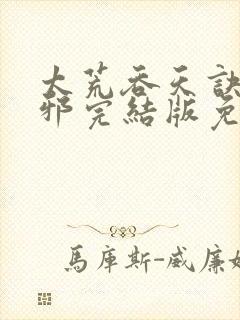 大荒吞天訣
邪完結版免
馬庫斯-威廉姆